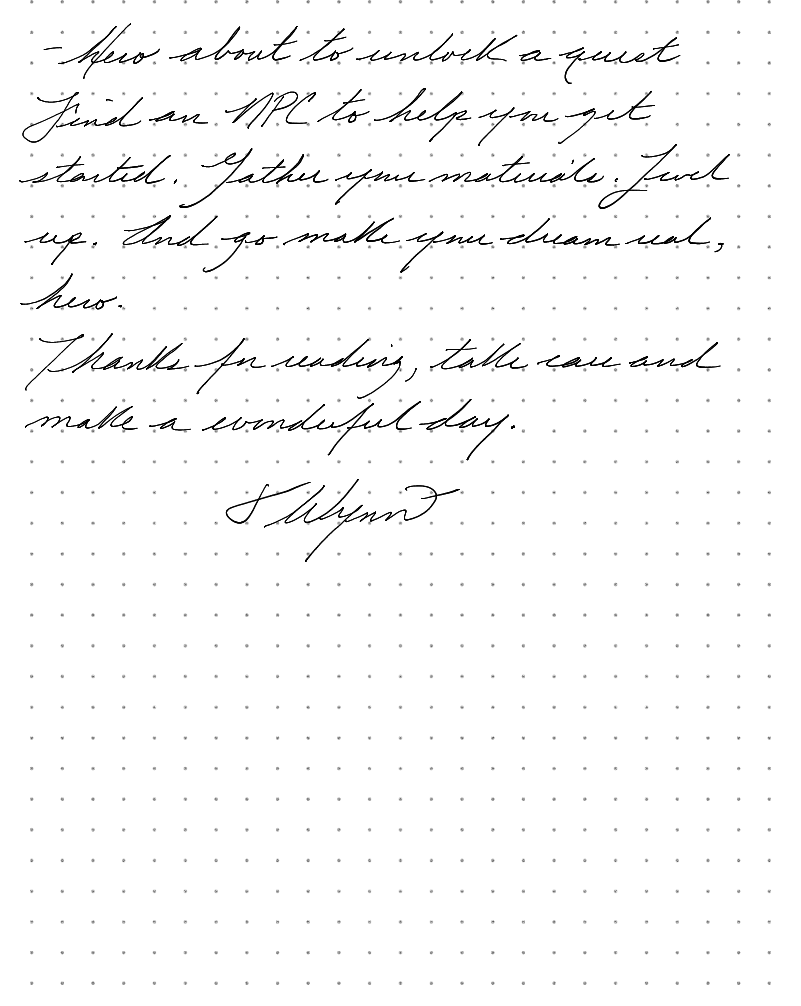 - Hero about to unlock a quest
Find an NPC to help you get
started. Gather your materials. Level
up. And go make your dream real,
hero.
Thanks for reading, take care and
make a wonderful day.
Wynn